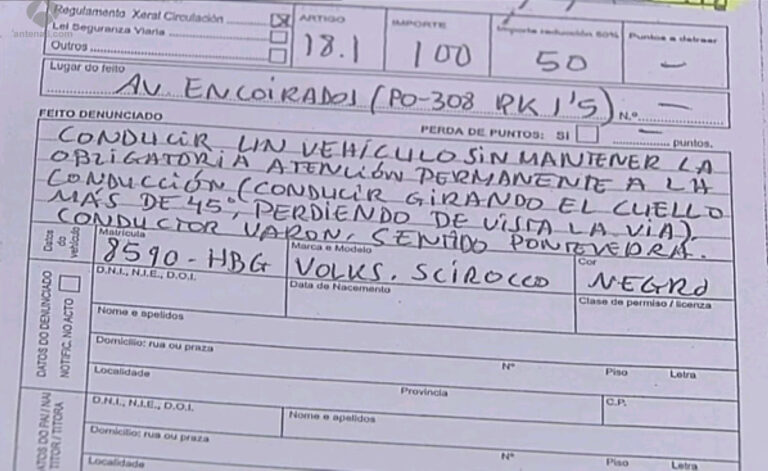 antena3.com
Regulamento Xeral Circulación ☒
Lei Seguranza Viaria
Outros
ARTIGO
18.1
IMPORTE
100
Importe reducción 50%
50
Puntos a detraer
—
Lugar do feito
AV. ENCOIRADOS (PO-308 PK 1'5)
N.º —
FEITO DENUNCIADO
PERDA DE PUNTOS: SI — puntos.
CONDUCIR UN VEHÍCULO SIN MANTENER LA
OBLIGATORIA ATENCIÓN PERMANENTE A LA
CONDUCCIÓN (CONDUCIR GIRANDO EL CUELLO
MÁS DE 45º, PERDIENDO DE VISTA LA VIA).
CONDUCTOR VARON, SENTIDO PONTEVEDRA.
Datos do vehículo
Matrícula
8590-HBG
Marca e Modelo
VOLKS. SCIROCCO
Cor
NEGRO
DATOS DO DENUNCIADO
NOTIFIC. NO ACTO
D.N.I., N.I.E., D.O.I.
Data de Nacemento
Clase de permiso / licenza
Nome e apelidos
Domicilio: rua ou praza
Nº
Piso
Letra
Localidade
Provincia
C.P.
DATOS DO PAI / NAI
TITOR / TITORA
D.N.I., N.I.E., D.O.I.
Nome e apelidos
Domicilio: rua ou praza
Nº
Piso
Letra
Localidade